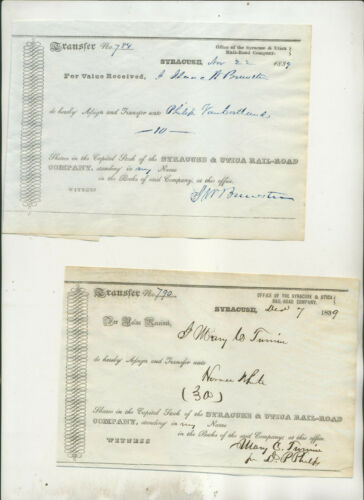 Transfer No. 784
Office of the Syracuse & Utica
Rail-Road Company.
SYRACUSE, Nov 22 1839
For Value Received, I Isaac W Brewster
do hereby Assign and Transfer unto Philip Van Cortland,
—10—
Shares in the Capital Stock of the SYRACUSE & UTICA RAIL-ROAD
COMPANY, standing in my Name
in the Books of said Company, at this office.
WITNESS
W Brewster
Transfer No. 790
OFFICE OF THE SYRACUSE & UTICA
RAIL-ROAD COMPANY.
SYRACUSE, Dec 7 1839
For Value Received,
I Mary C
do hereby Assign and Transfer unto
White
(30)
Shares in the Capital Stock of the SYRACUSE & UTICA RAIL-ROAD
COMPANY, standing in my Name
in the Books of the said Company at this office.
WITNESS
Mary C.
P Phelps